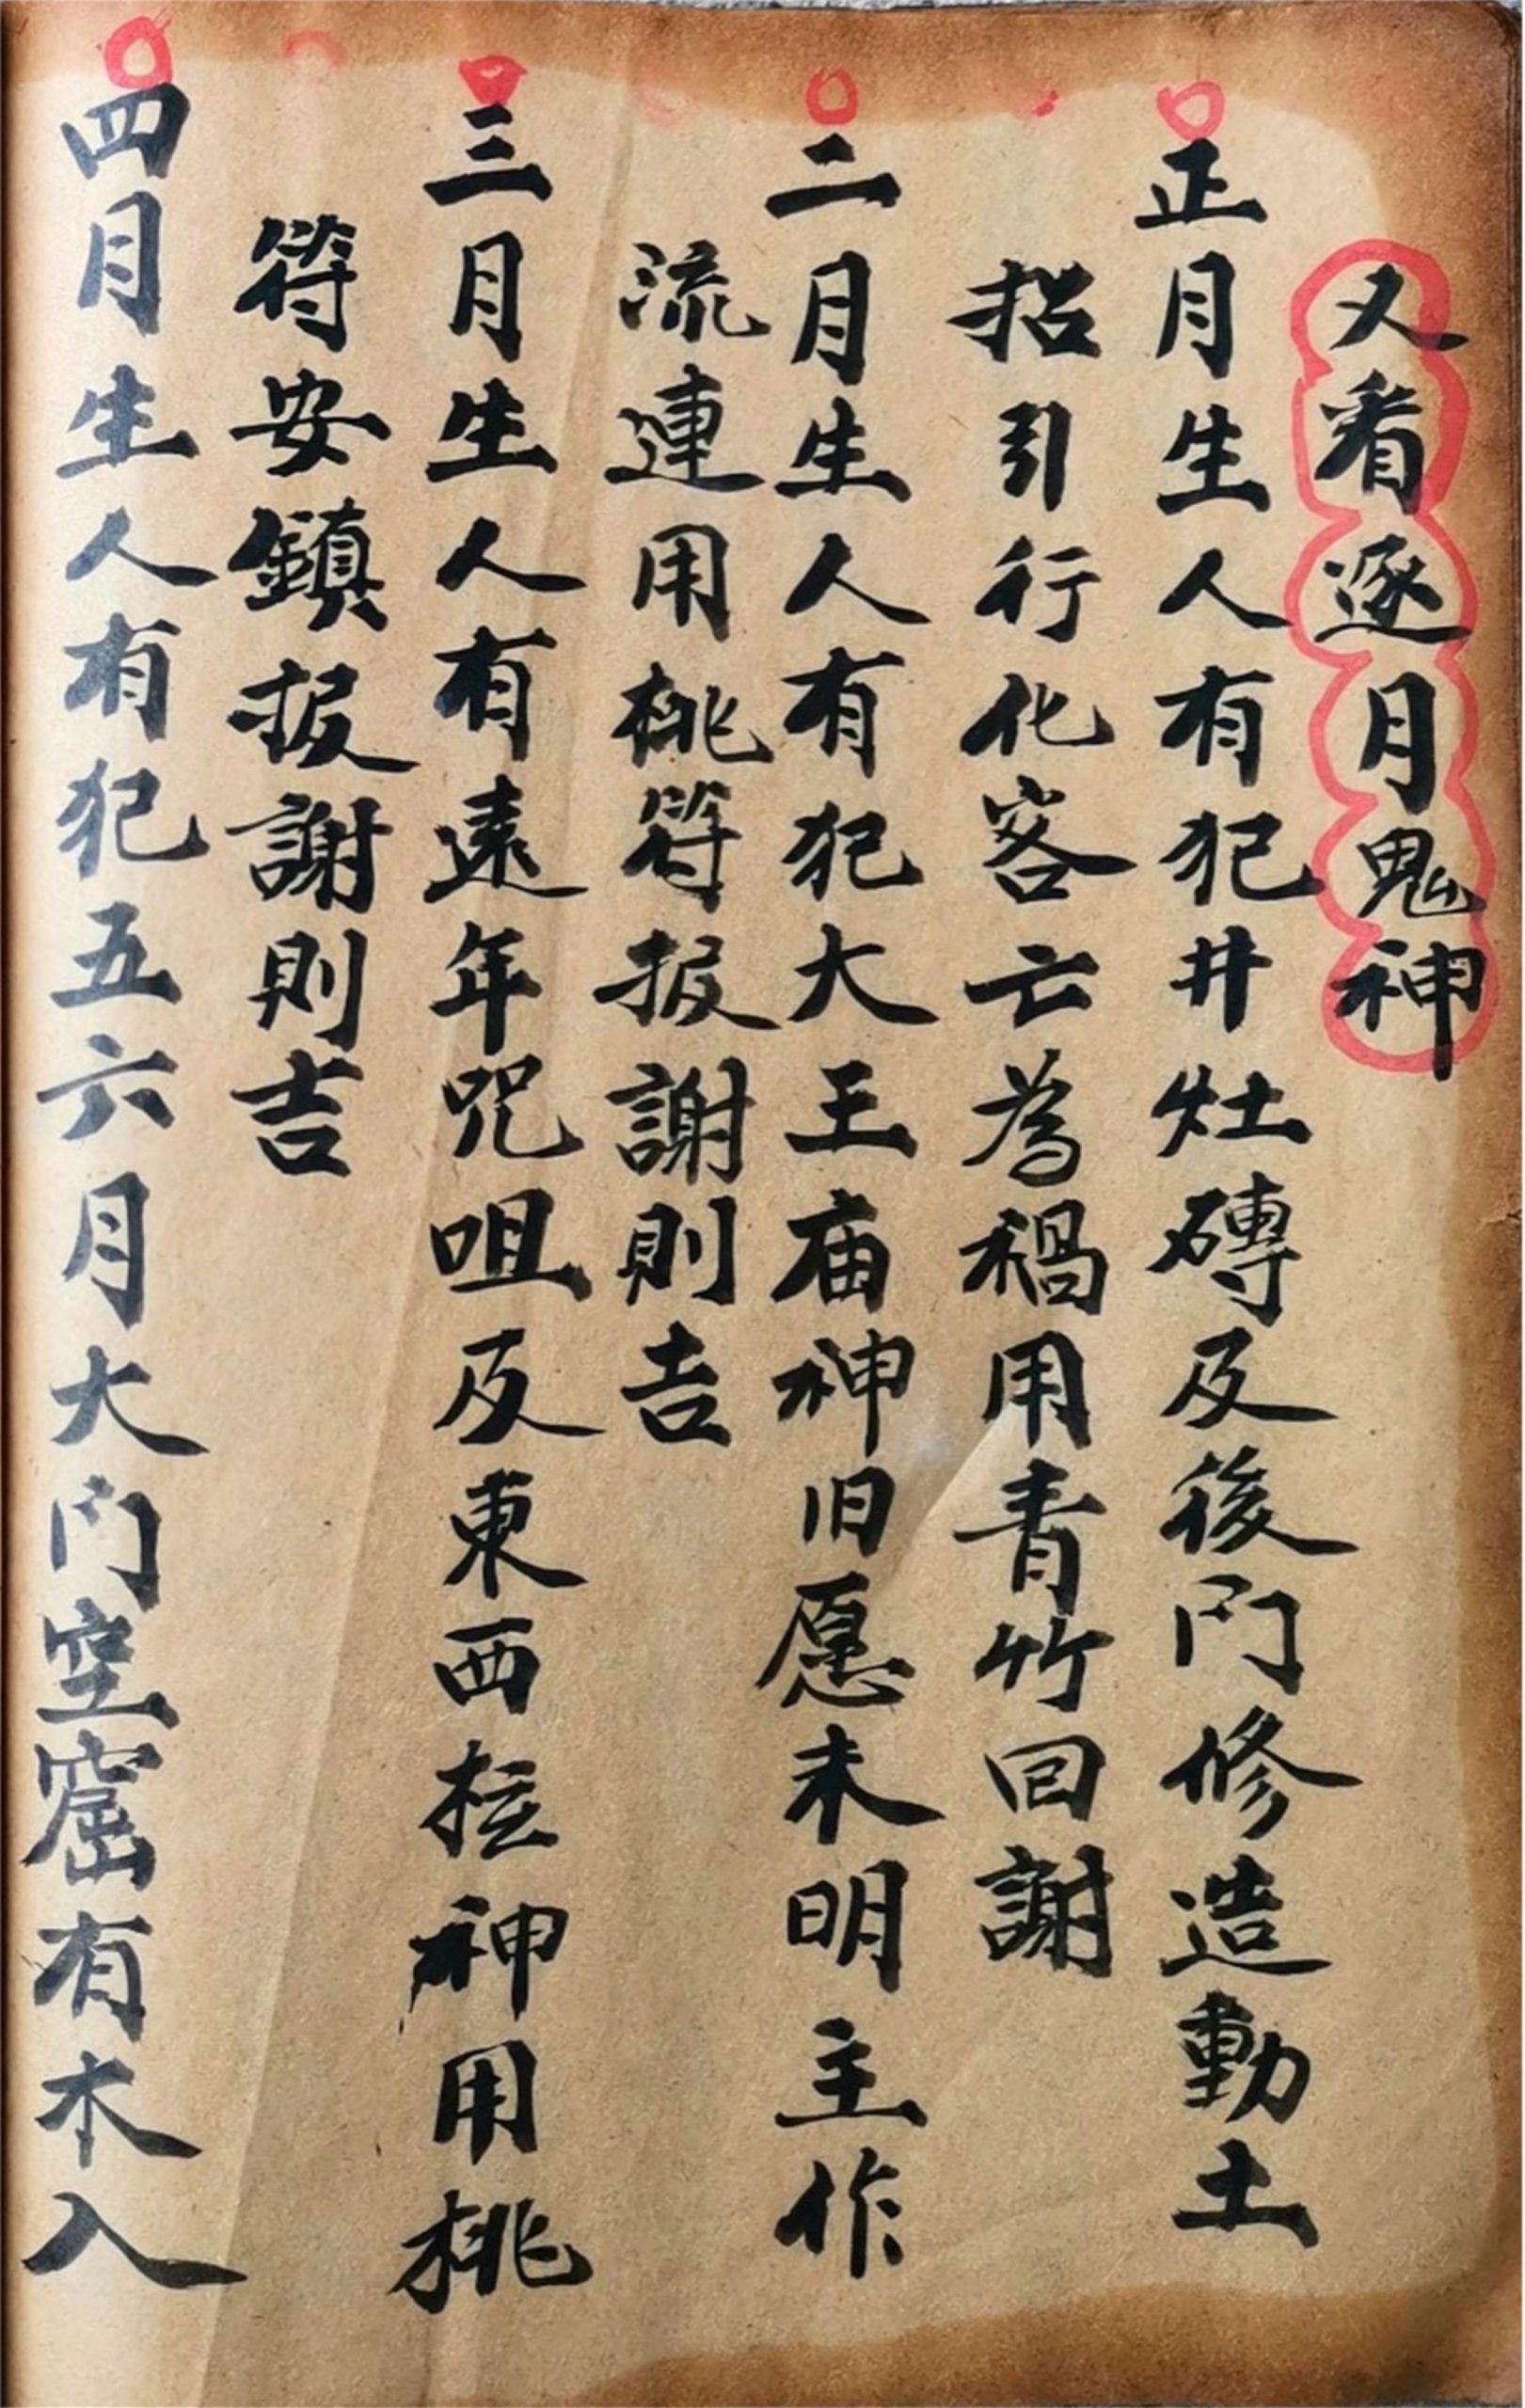 又看逐月鬼神
正月生人有犯井灶磚及後门修造動土
招引行化客亡為禍用青竹回謝
二月生人有犯大王庙神旧愿未明主作
流連用桃符报謝則吉
三月生人有遠年咒咀及東西坛神用桃
符安鎮报謝則吉
四月生人有犯五六月大门空窟有木入